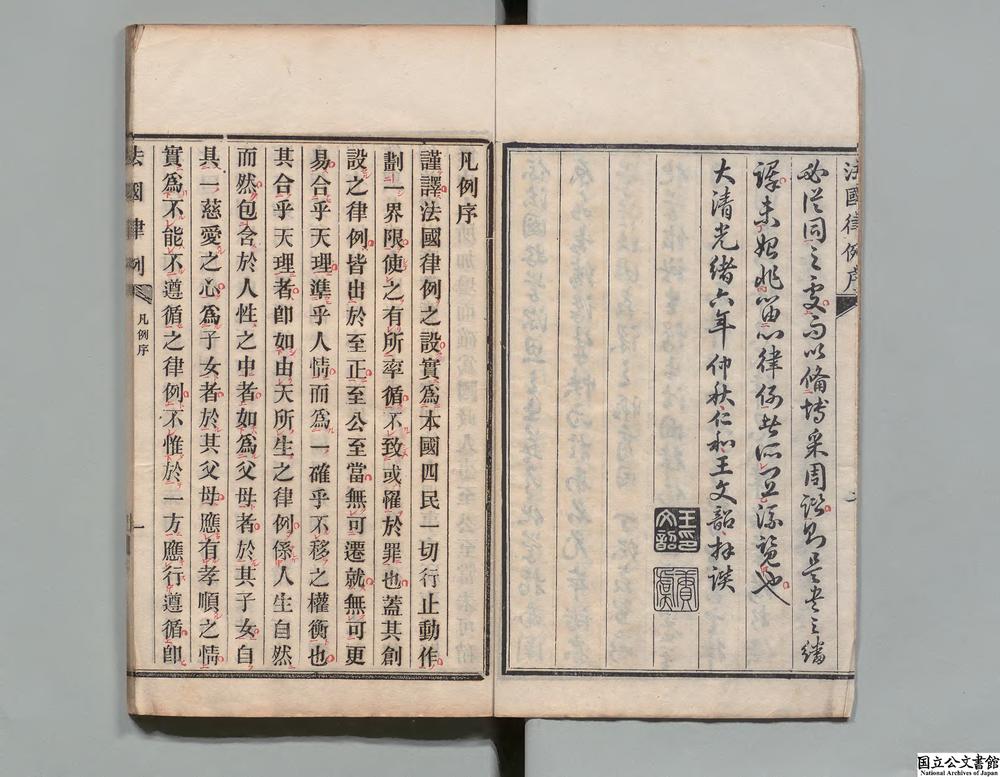 法國律例序
必從同之處而以備博采周諮則是書之繙
譯未始非留心律例者所宜流覽也
大清光緒六年仲秋仁和王文韶拜譔
王印文韶
賡虞
凡例序
謹譯法國律例之設實爲本國四民一切行止動作
劃一界限使之有所率循不致或罹於罪也蓋其創
設之律例皆出於至正至公至當無可遷就無可更
易合乎天理準乎人情而爲一確乎不移之權衡也
其合乎天理者卽如由天所生之律例係人生自然
而然包含於人性之中者如爲父母者於其子女自
具一慈愛之心爲子女者於其父母應有孝順之情
實爲不能不遵循之律例不惟於一方應行遵循卽
法國律例 凡例序 一
国立公文書館
National Archives of Japan